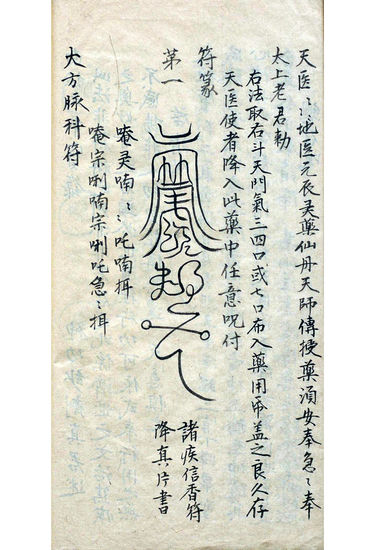 天医〻地医元辰灵藥仙丹天師傳授藥須安奉急〻奉
太上老君勅
右法取右斗天門氣三四口或七口布入藥用帋盖之良久存
天医使者降入此藥中任意呪付
符篆
第一
諸疾信香符
降真片書
唵灵喃〻吒喃挕
唵宗唎喃宗唎吒急〻挕
大方脉科符